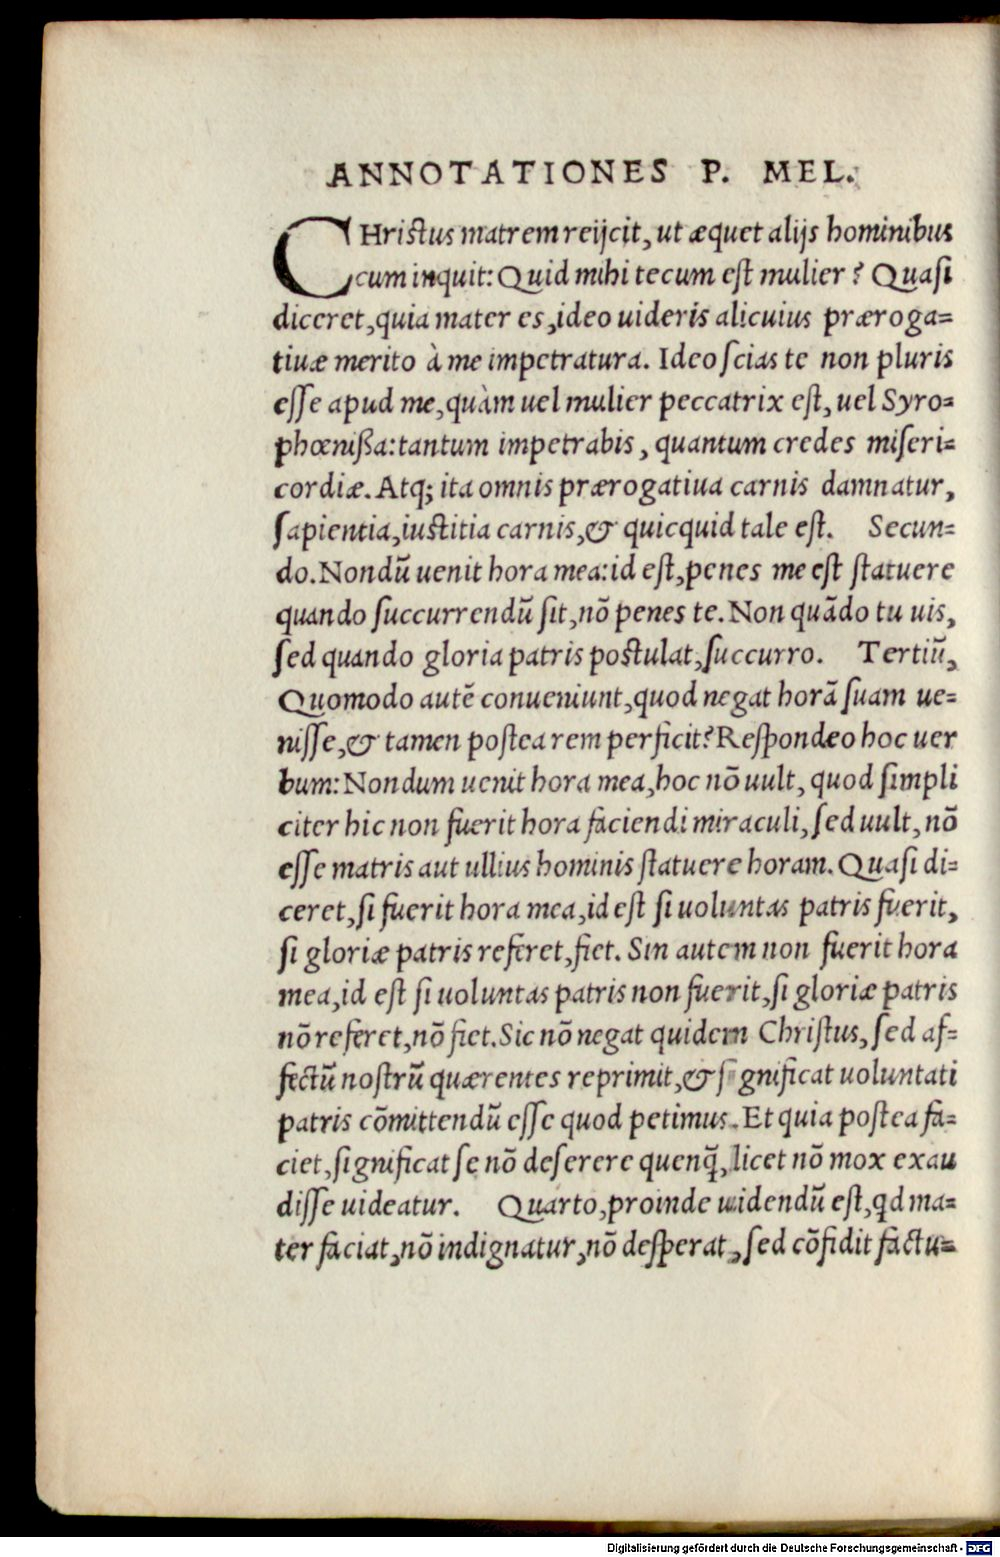 ANNOTATIONES P. MEL.
CHristus matrem reijcit, ut æquet alijs hominibus
cum inquit: Quid mihi tecum est mulier? Quasi
diceret, quia mater es, ideo uideris alicuius præroga=
tiuæ merito à me impetratura. Ideo scias te non pluris
esse apud me, quàm uel mulier peccatrix est, uel Syro=
phœnißa: tantum impetrabis, quantum credes miseri=
cordiæ. Atq; ita omnis prærogatiua carnis damnatur,
sapientia, iustitia carnis, & quicquid tale est. Secun=
do. Nondũ uenit hora mea: id est, penes me est statuere
quando succurrendũ sit, nõ penes te. Non quãdo tu uis,
sed quando gloria patris postulat, succurro. Tertiũ,
Quomodo autẽ conueniunt, quod negat horã suam ue=
nisse, & tamen postea rem perficit? Respondeo hoc uer
bum: Nondum uenit hora mea, hoc nõ uult, quod simpli
citer hic non fuerit hora faciendi miraculi, sed uult, nõ
esse matris aut ullius hominis statuere horam. Quasi di=
ceret, si fuerit hora mea, id est si uoluntas patris fuerit,
si gloriæ patris referet, fiet. Sin autem non fuerit hora
mea, id est si uoluntas patris non fuerit, si gloriæ patris
nõ referet, nõ fiet. Sic nõ negat quidem Christus, sed af=
fectũ nostrũ quærentes reprimit, & significat uoluntati
patris cõmittendũ esse quod petimus. Et quia postea fa=
ciet, significat se nõ deserere quenq̃, licet nõ mox exau
disse uideatur. Quarto, proinde uidendũ est, qd ma=
ter faciat, nõ indignatur, nõ desperat, sed cõfidit factu=
Digitalisierung gefördert durch die Deutsche Forschungsgemeinschaft - DFG